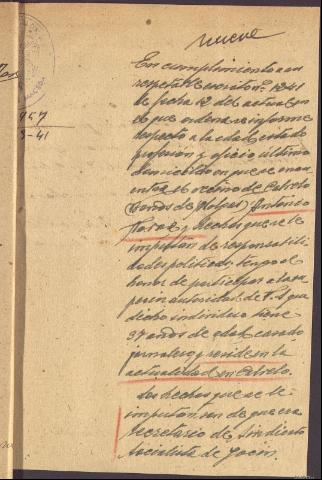 nueve
En cumplimiento a su
respetable escrito nº 1241
de fecha 12 del actual en
lo que ordena se informe
respecto a la edad, estado
profesión y oficio último
domicilio en que se encu
entra el vecino de Estrelo
Antonio
y hechos que se le
imputan de responsabili
dades politicas tengo el
honor de participar a la su
perior autoridad de V.S. que
dicho individuo tiene
37 años de edad casado
jornalero y reside en la
actualidad en Estrelo.
Los hechos que se le
imputan son de que era
Secretario de Sindicato
Socialista de